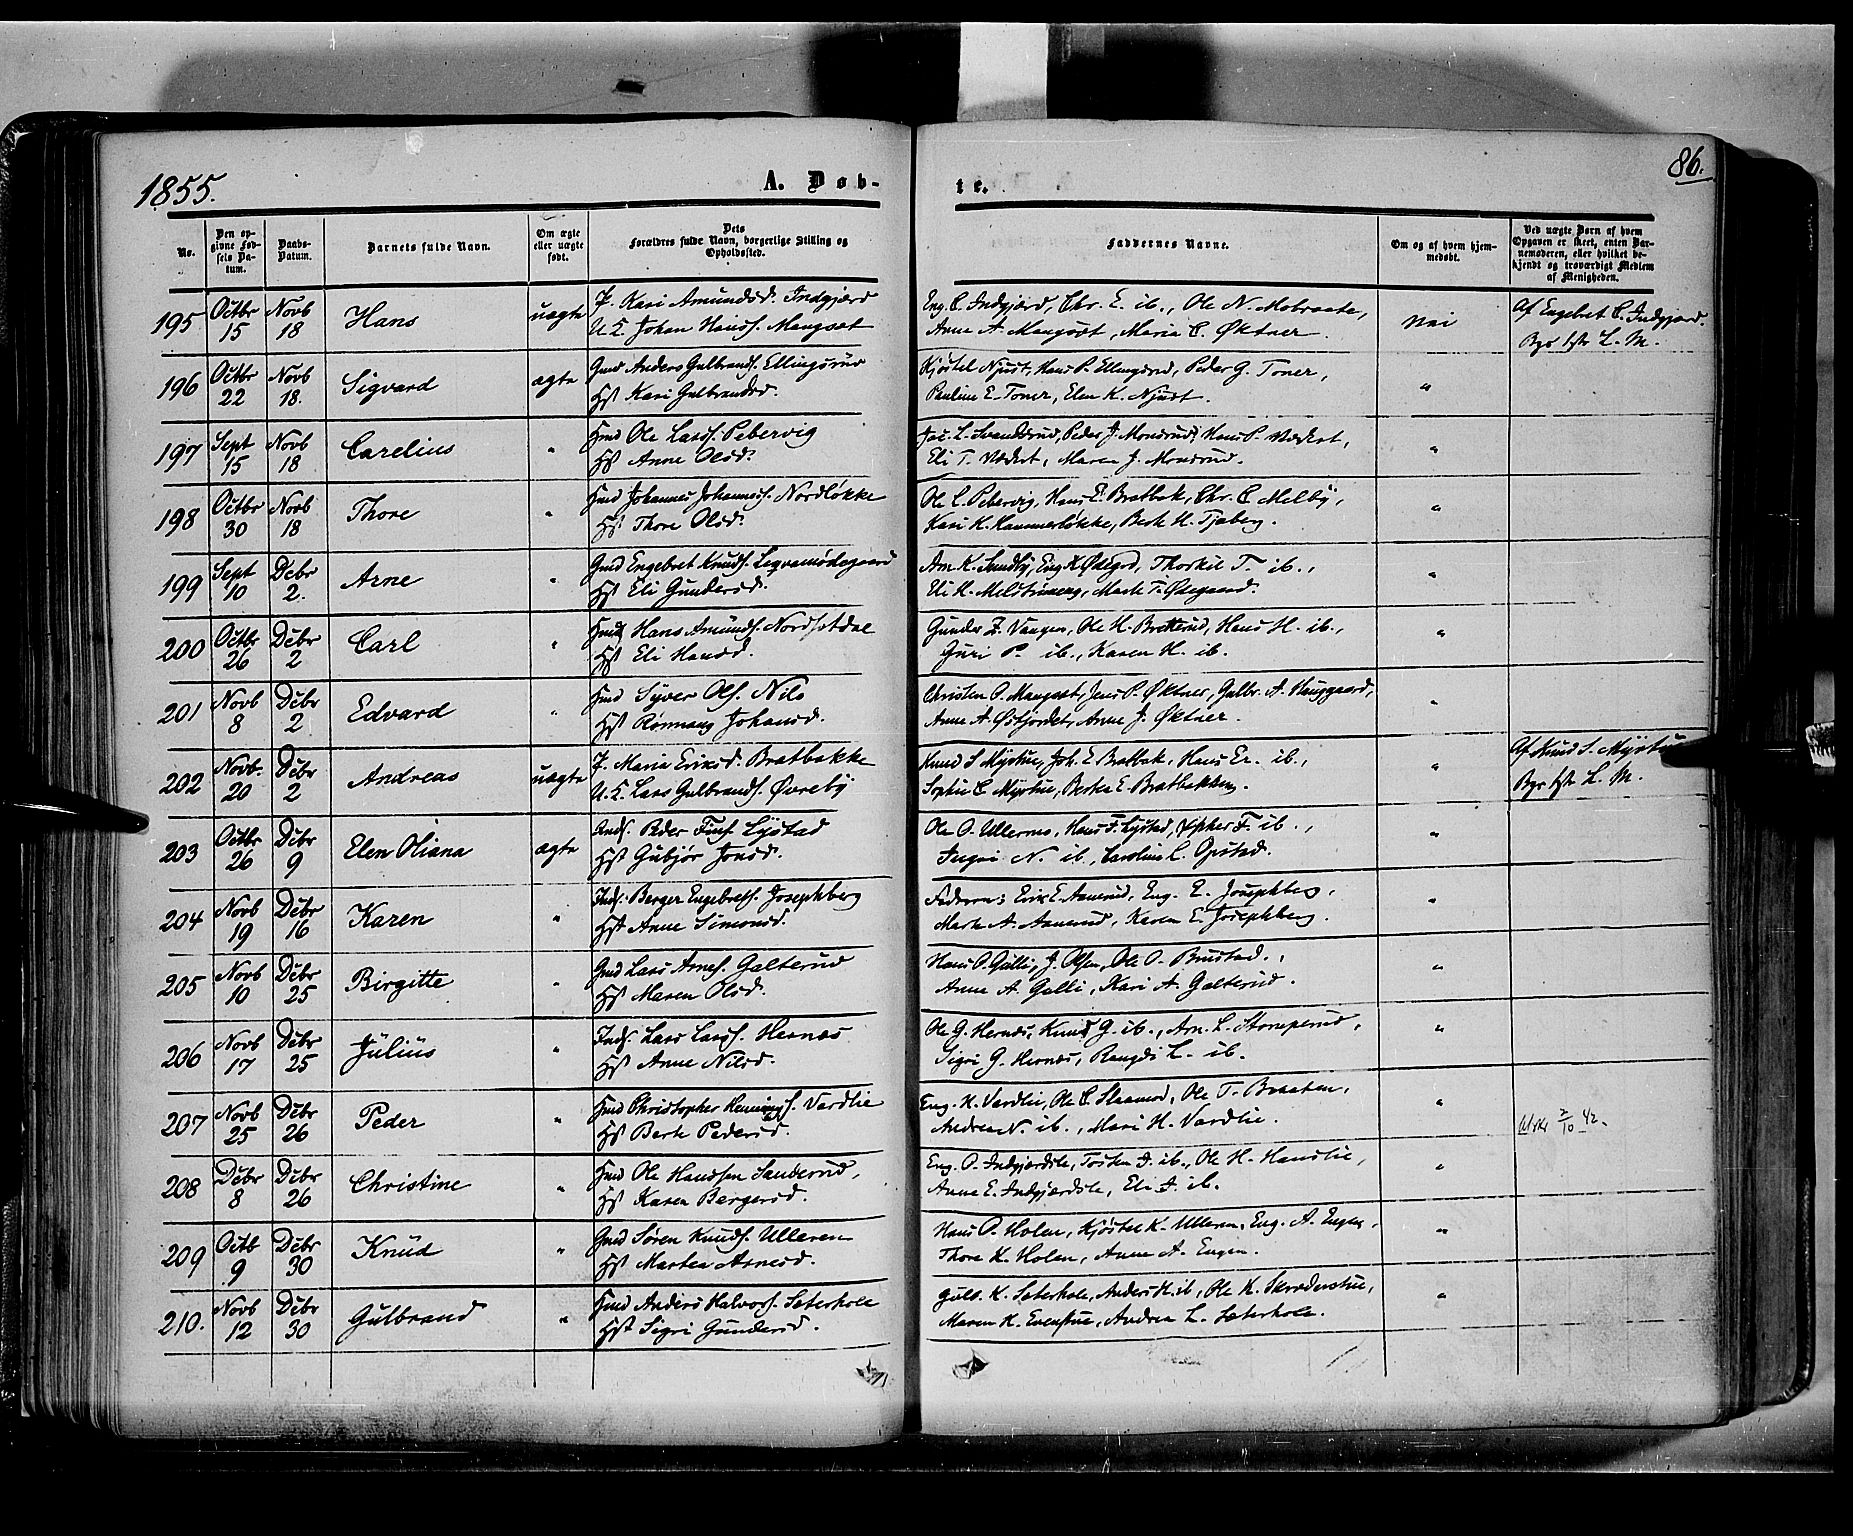 1855.
A. Døb-
te.
86.
No.
Den op-
givne Fød-
sels Da-
tum.
Daabs-
Datum.
Barnets fulde Navn.
Om ægte
eller uægte
født.
Dets
Forældres fulde Navn, borgerlige Stilling og
Opholdssted.
Faddernes Navne.
Om og af hvem hjem-
medøbt.
Ved uægte Børn af hvem
Opgaven er skeet, enten Bar-
nemoderen, eller hvilket be-
kjendt og troværdigt Medlem
af Menigheden.
195 Octbr 15 Novb 18 Hans uægte P. Kari Amundsd. Indgjærd
U. K. Johan Hansf. Mangset
Eng. C. Indgjærd, Chr. E. ib., Ole N. Mobraate,
Anne A. Mangset, Maria C. Øktner. Nei
Af Engebret C. Indgjærd.
196 Octbr 22 Novb 18. Sigvard ægte Gmd Anders Gulbrandf. Ellingsrud
Hst Kari Gulbrandsd.
Kjøstel Njust, Hans P. Ellingsrud, Peder G. Toner,
Pauline E. Toner, Elen K. Njust. "
197 Sept 15 Novb 18 Carelius " Hmd Ole Larsf. Pebervig
Hst Anne Olsd.
Peder J. Monsrud, Hans P.
Eli T. Maren J. Monsrud. "
198 Octbr 30 Novb 18 Thore " Hmd Johannes Johannesf. Nordløkke
Hst Thore Olsd.
Ole L. Pebervig, Hans E. Bratbak, Chr. C. Melby,
Kari H. Kammerløkke, Berte H. Tjaberg. "
199 Sept 10 Debr 2. Arne " Gmd Engebret Knudf.
Hst Eli Gundersd.
Am. K. Sundby, Eng. K. Ødegrd, Thorkil T. ib.,
Marte T. Ødegaard. "
200 Octbr 26 Debr 2 Carl " Hmd Hans Amundf. Nordsetdal
Hst Eli Hansd.
Gunder Z. Vangen, Ole H. Bratterud, Hans H. ib.,
Guri P. ib., Karen H. ib. "
201 Novb 8 Debr 2 Edvard " Hmd Syver Olf. Nilo
Hst Rønnaug Johansd.
Christen O. Mangset, Jens P. Øktner, Gulbr. A. Hauggaard,
Anne A. Østfjordet, Anne J. Øktner. "
202 Novb. 20 Debr 2 Andreas uægte P. Maria Eriksd. Bratbakke
U. K. Lars Gulbrandf. Øvreby
Knud S. Myrstue, Joh. E. Bratbak, Hans Er. ib.,
Sophie C. Myrstue, Berthe E. Bratbakken. "
Af Knud S. Myrstue
203 Octbr 26 Debr 9 Elen Oliana ægte Peder Finf. Lystad
Hst Gubjør Jonsd.
Ole O. Ullernes, Hans F. Lystad, F. ib.,
Ingri N. ib., Caroline L. Opstad. "
204 Novb 19 Debr 16 Karen " Indf. Berger Engebretf. Josephberg
Hst Anne Simonsd.
Faderen, Erik E. Aamerud, Eng. E. Josephberg,
Marte A. Aamerud, Karen E. Josephberg. "
205 Novb 10 Debr 25 Birgitte " Gmd Lars Arnef. Galterud
Hst Maren Olsd.
Hans O. Galli, J. Olsen, Ole O. Brustad,
Anne A. Galli, Kari A. Galterud. "
206 Novb 17 Debr 25 Julius " Indf. Lars Larsf. Hernæs
Hst Anne Nilsd.
Ole G. Hernæs, Knud G. ib., Arn. L. Stoneperud,
Sigri G. Hernæs, L. ib. "
207 Novb 25 Debr 26 Peder " Hmd Christopher Henningf. Vardlie
Hst Berte Pedersd.
Eng. H. Vardlie, Ole C. Slaamo, Ole T. Braaten,
Andrea N. ib., Mari H. Vardlie. "
2/10 42.
208 Debr 8 Debr 26 Christine " Hmd Ole Hansen Sanderud,
Hst Karen Bergersd.
Eng. O. Indgjærdsle, Tosten I. ib., Ole H. Hanslie,
Anne E. Indgjærdsle, Eli I. ib. "
209 Octb 9 Debr 30 Knud " Gmd Søren Knudf. Ulleren
Hst Marthea Arnesd.
Hans O. Holen, Kjøstel K. Ulleren, Eng. A. Engen,
Thore K. Holen, Anne A. Engen. "
210. Novb 12 Debr 30 Gulbrand " Hmd Anders Halvorf. Seterhole
Hst Sigri Gundersd.
Gulb. K. Seterhole, Anders H. ib, Ole K. Skrædderstue,
Maren K. Evenstue, Andrea L. Seterhole. "